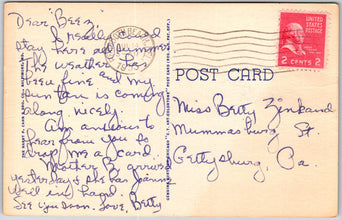 Dear Beez,
I really could
stay here all summer.
The weather has
been fine and my
sun tan is coming
along nicely.
Am anxious to
hear from you so
drop me a card.
Mother B. arrived
yesterday & she has Joanne
well in hand.
See you soon. Love, Betty
POST CARD
UNITED STATES
POSTAGE
2 CENTS 2
Miss Betty Zinkand
Mummasburg St.
Gettysburg, Pa.